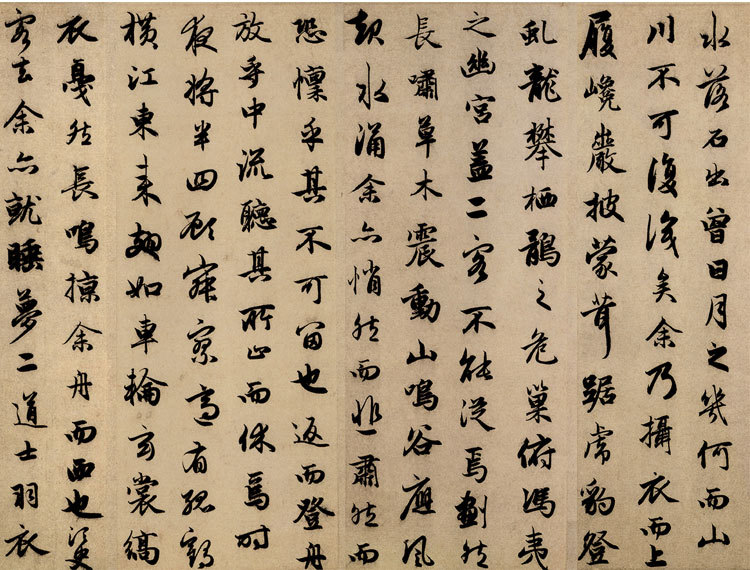 水落石出曾日月之幾何而山
川不可復識矣余乃攝衣而上
履巉巖披蒙茸踞虎豹登
虬龍攀栖鶻之危巢俯馮夷
之幽宮蓋二客不能從焉劃然
長嘯草木震動山鳴谷應風
起水涌余亦悄然而悲肅然而
恐懍乎其不可留也返而登舟
放乎中流聽其所止而休焉時
夜將半四顧寂寥適有孤鶴
橫江東來翅如車輪玄裳縞
衣戛然長鳴掠余舟而西也須臾
客去余亦就睡夢二道士羽衣